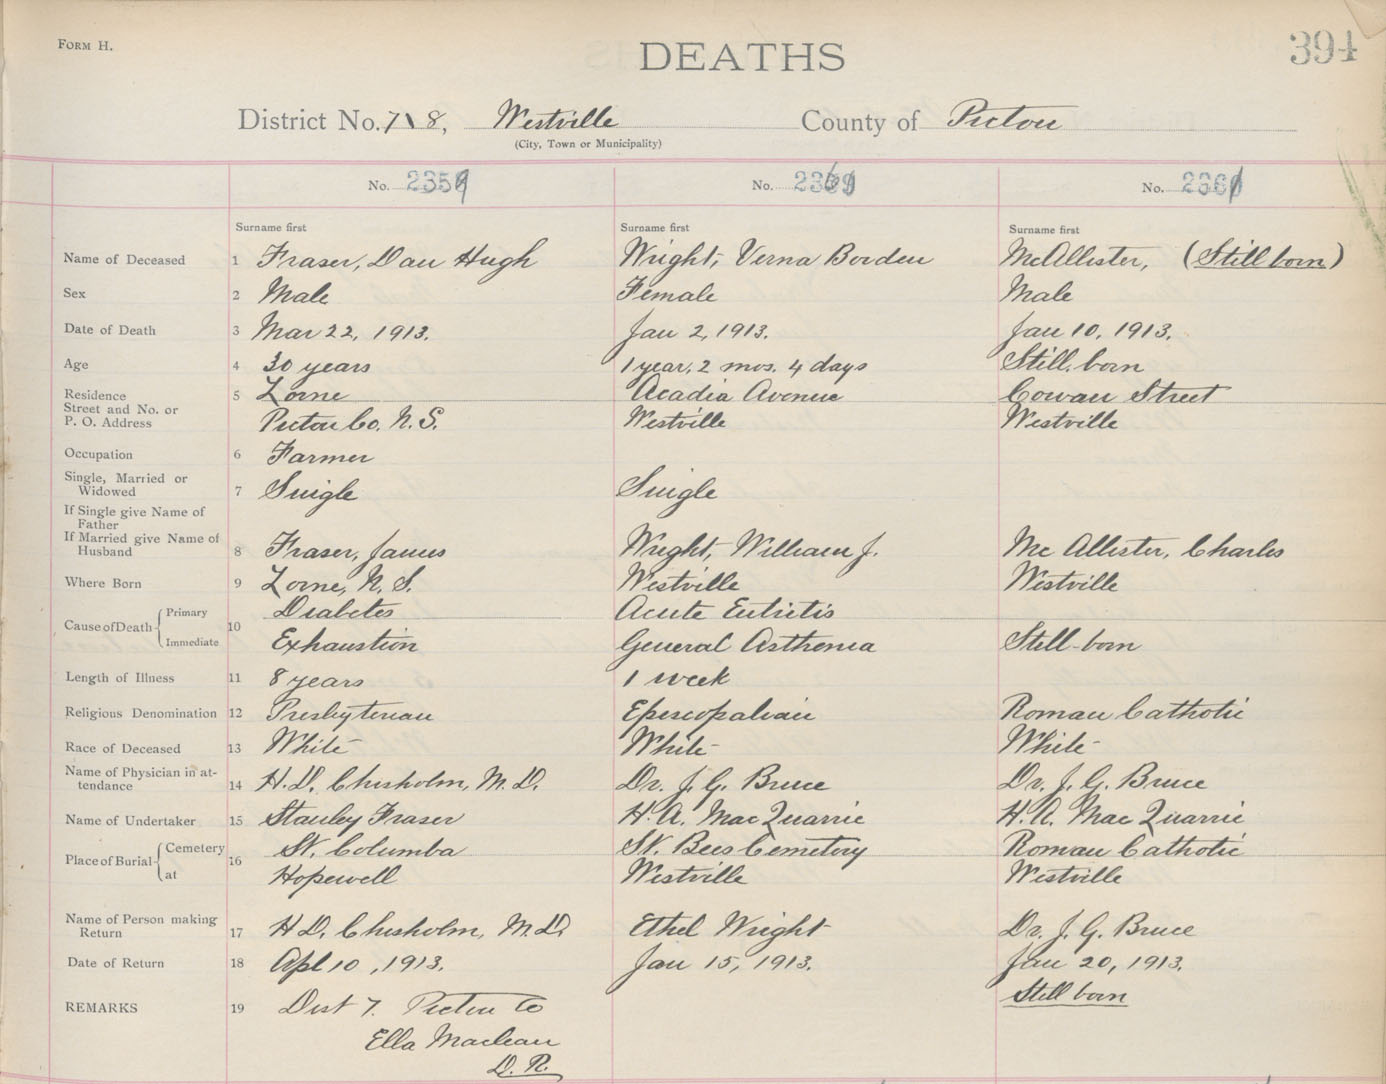 FORM H.
DEATHS
394
District No. 7 \ 8, Westville County of Pictou
(City, Town or Municipality)
No. No. No.
Surname first Surname first Surname first
Name of Deceased 1 Fraser, Dan Hugh Wright, Verna Borden McAllister, (Still born)
Sex 2 Male Female Male
Date of Death 3 Mar 22, 1913. Jan 2, 1913. Jan 10, 1913.
Age 4 30 years 1 year, 2 mos. 4 days Still born
Residence 5 Lorne Acadia Avenue Cowan Street
Street and No. or
P. O. Address Pictou Co. N. S. Westville Westville
Occupation 6 Farmer
Single, Married or
Widowed 7 Single Single
If Single give Name of
Father
If Married give Name of
Husband 8 Fraser, James Wright, William J. Mc Allister, Charles
Where Born 9 Lorne, N. S. Westville Westville
Primary Diabetes Acute Entritis
Cause of Death 10
Immediate Exhaustion General Asthenia Still-born
Length of Illness 11 8 years 1 week
Religious Denomination 12 Presbyterian Episcopalian Roman Catholic
Race of Deceased 13 White White White
Name of Physician in at-
tendance 14 H. D. Chisholm, M. D. Dr. J. G. Bruce Dr. J. G. Bruce
Name of Undertaker 15 Stanley Fraser H. A. Mac Quarrie H. A. Mac Quarrie
Cemetery St. Columba St. Bees Cemetery Roman Catholic
Place of Burial 16
at Hopewell Westville Westville
Name of Person making
Return 17 H D. Chisholm, M. D. Ethel Wright Dr. J. G. Bruce
Date of Return 18 Apl 10, 1913. Jan 15, 1913. Jan 20, 1913.
REMARKS 19 Dist 7. Pictou Co Still born
Ella Maclean
D. R.